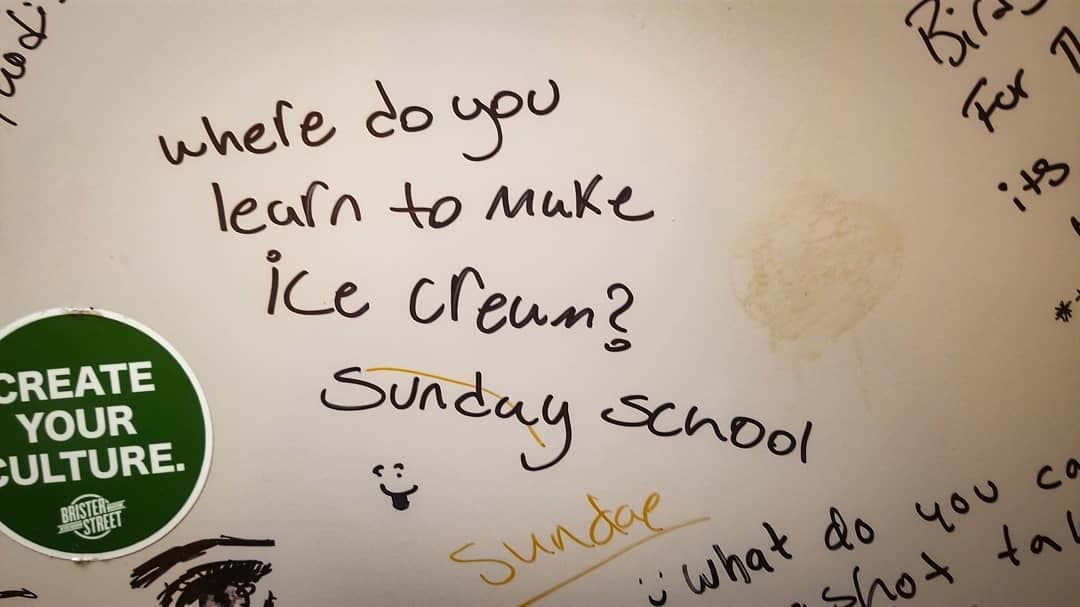 where do you
learn to make
ice cream?
Sunday school
Sundae
CREATE
YOUR
CULTURE.
BRISTER
STREET
For
its
what do you
shot